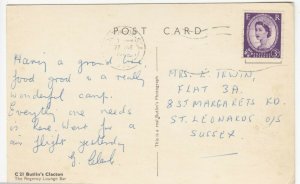 POST CARD
Having a grand time,
food good is a really
wonderful camp.
Everything one needs
is here. Went for a
air flight yesterday
G. Clark
C 21 Butlin's Clacton
The Regency Lounge Bar
E R
MRS. E. IRWIN,
FLAT 3A.
8 ST MARGARETS RD.
ST. LEONARDS O/S
SUSSEX.